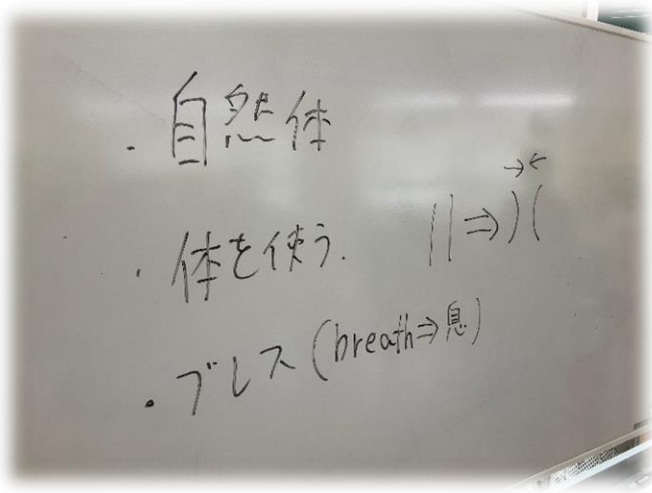 ・自然体
・体を使う. || ⇒ )(
・ブレス(breath⇒息)